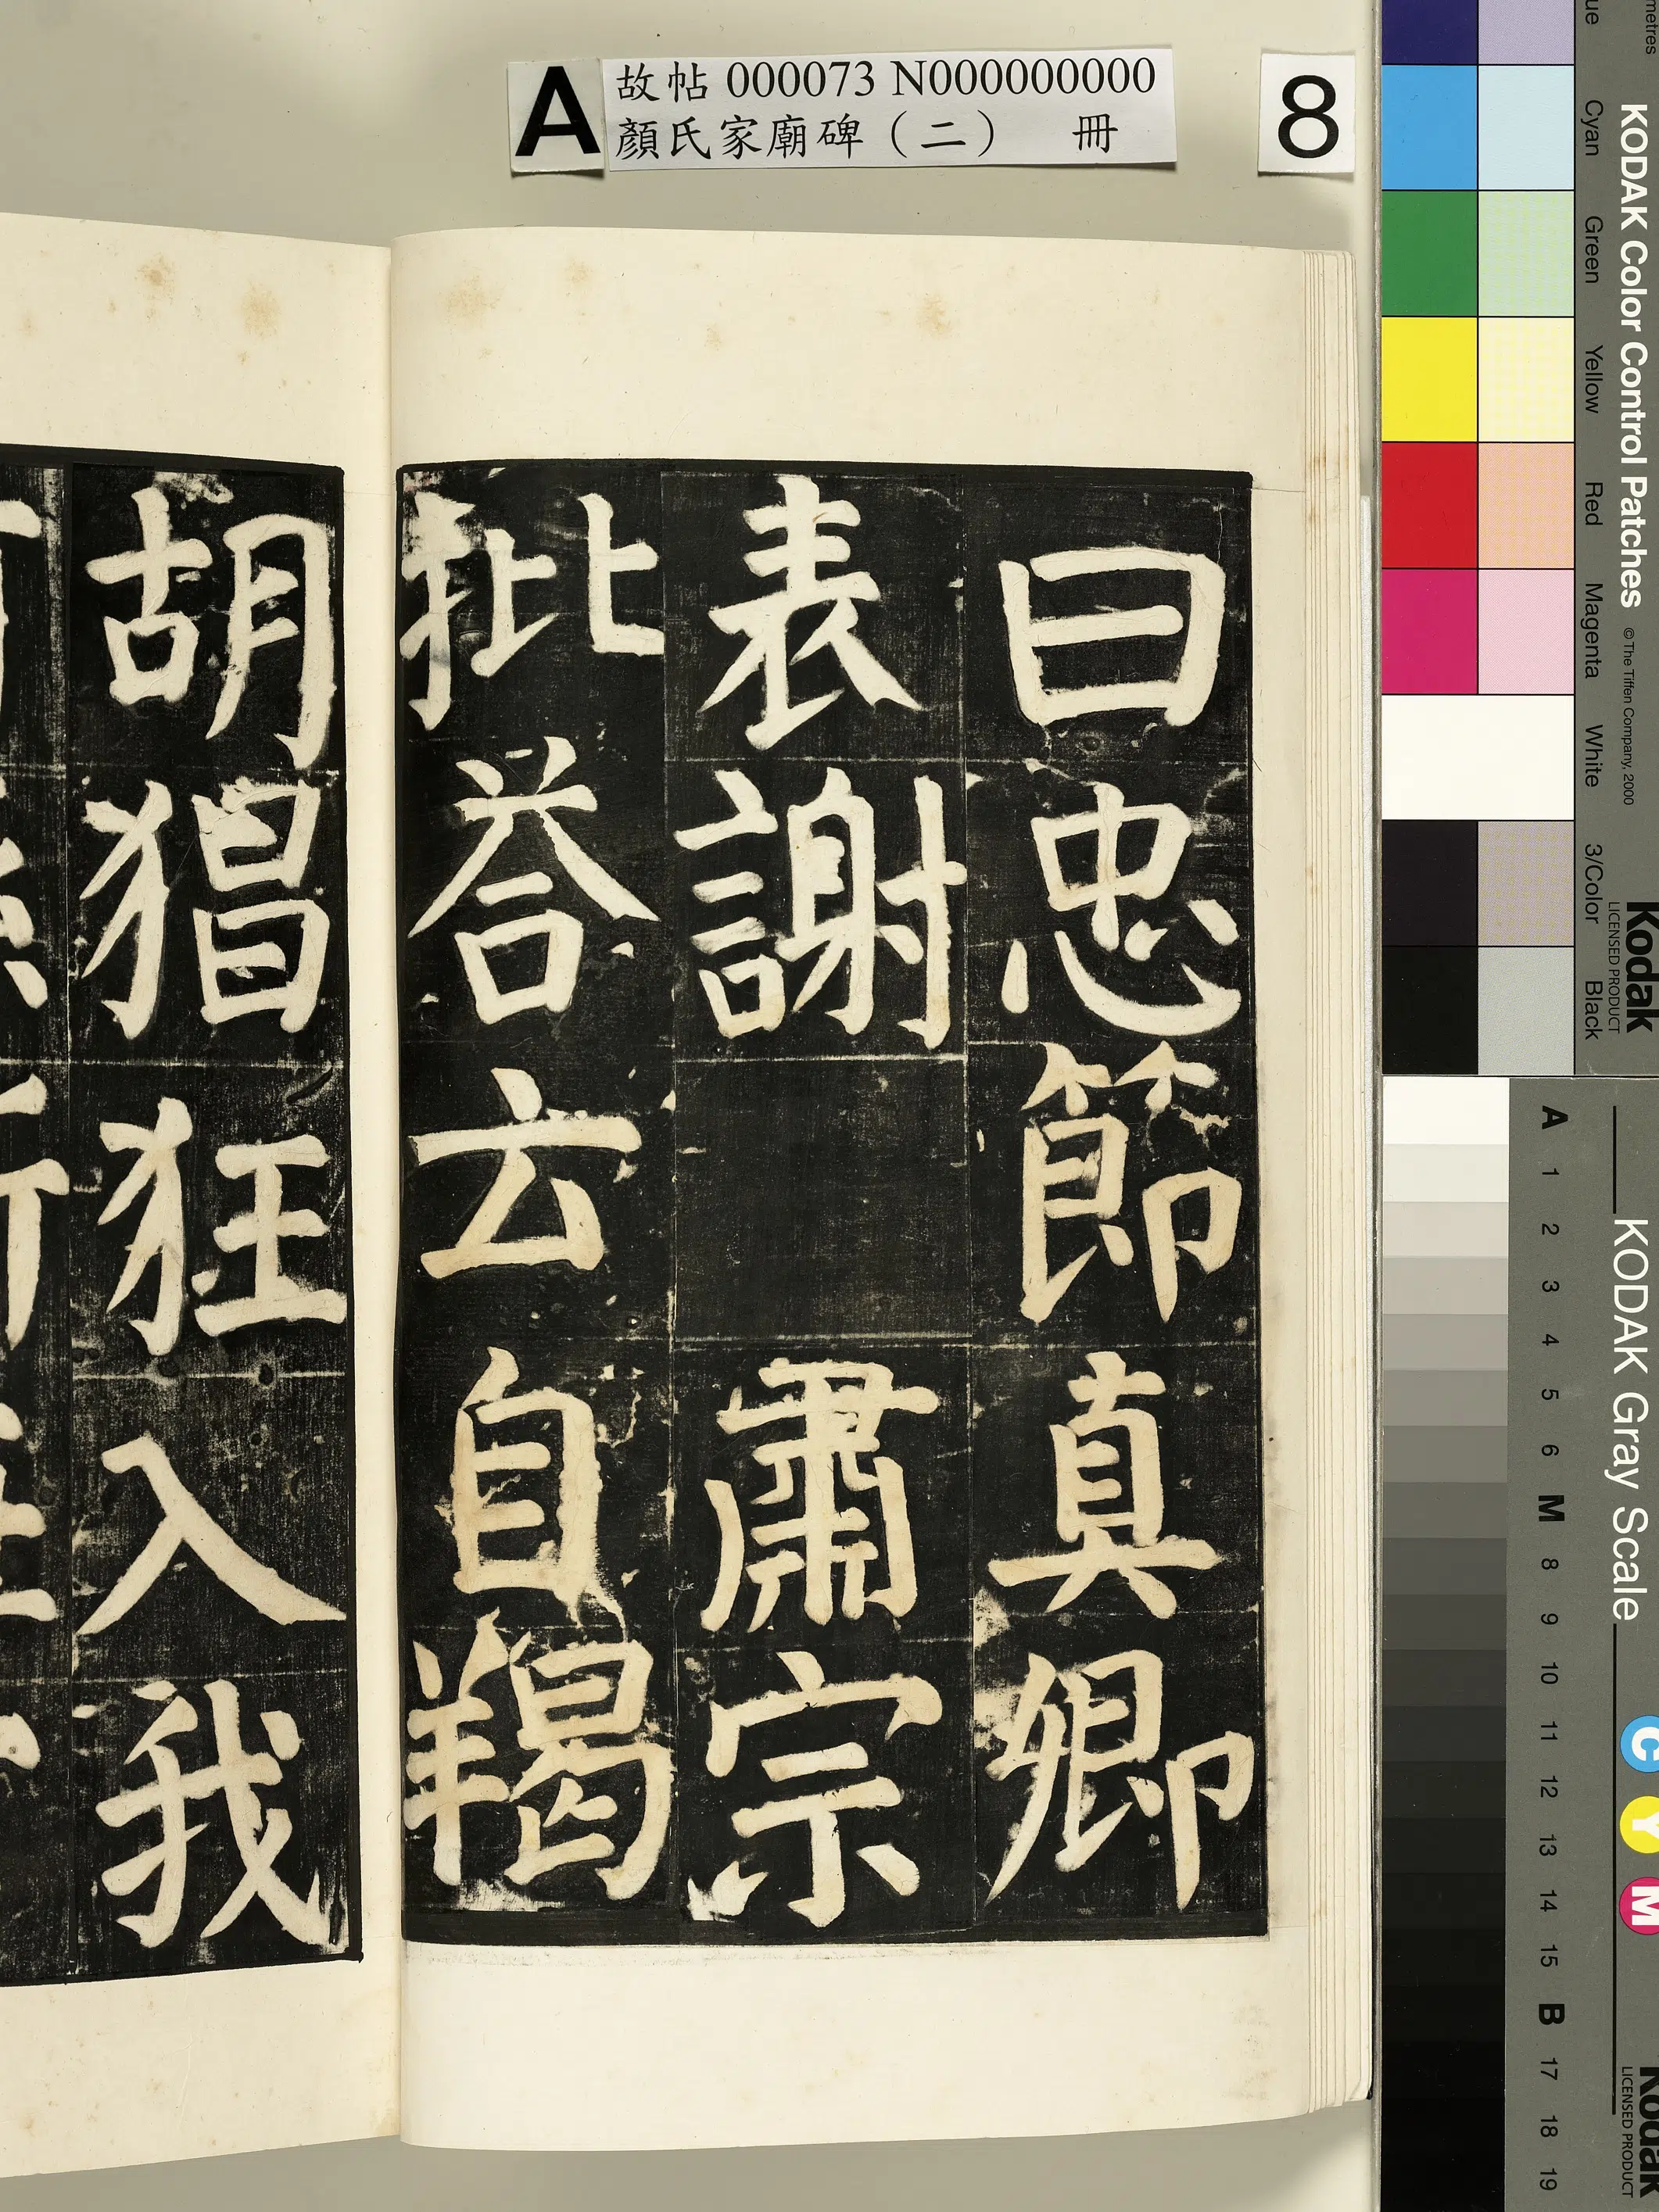 A 故帖 000073 N000000000
顏氏家廟碑（二） 冊
8
曰忠節真卿
表謝 肅宗
批荅云自羯
胡猖狂入我
KODAK Color Control Patches
© The Tiffen Company, 2000
Kodak
LICENSED PRODUCT
Cyan Green Yellow Red Magenta White 3/Color Black
KODAK Gray Scale
C Y M
Kodak
LICENSED PRODUCT
A 1 2 3 4 5 6 M 8 9 10 11 12 13 14 15 B 17 18 19